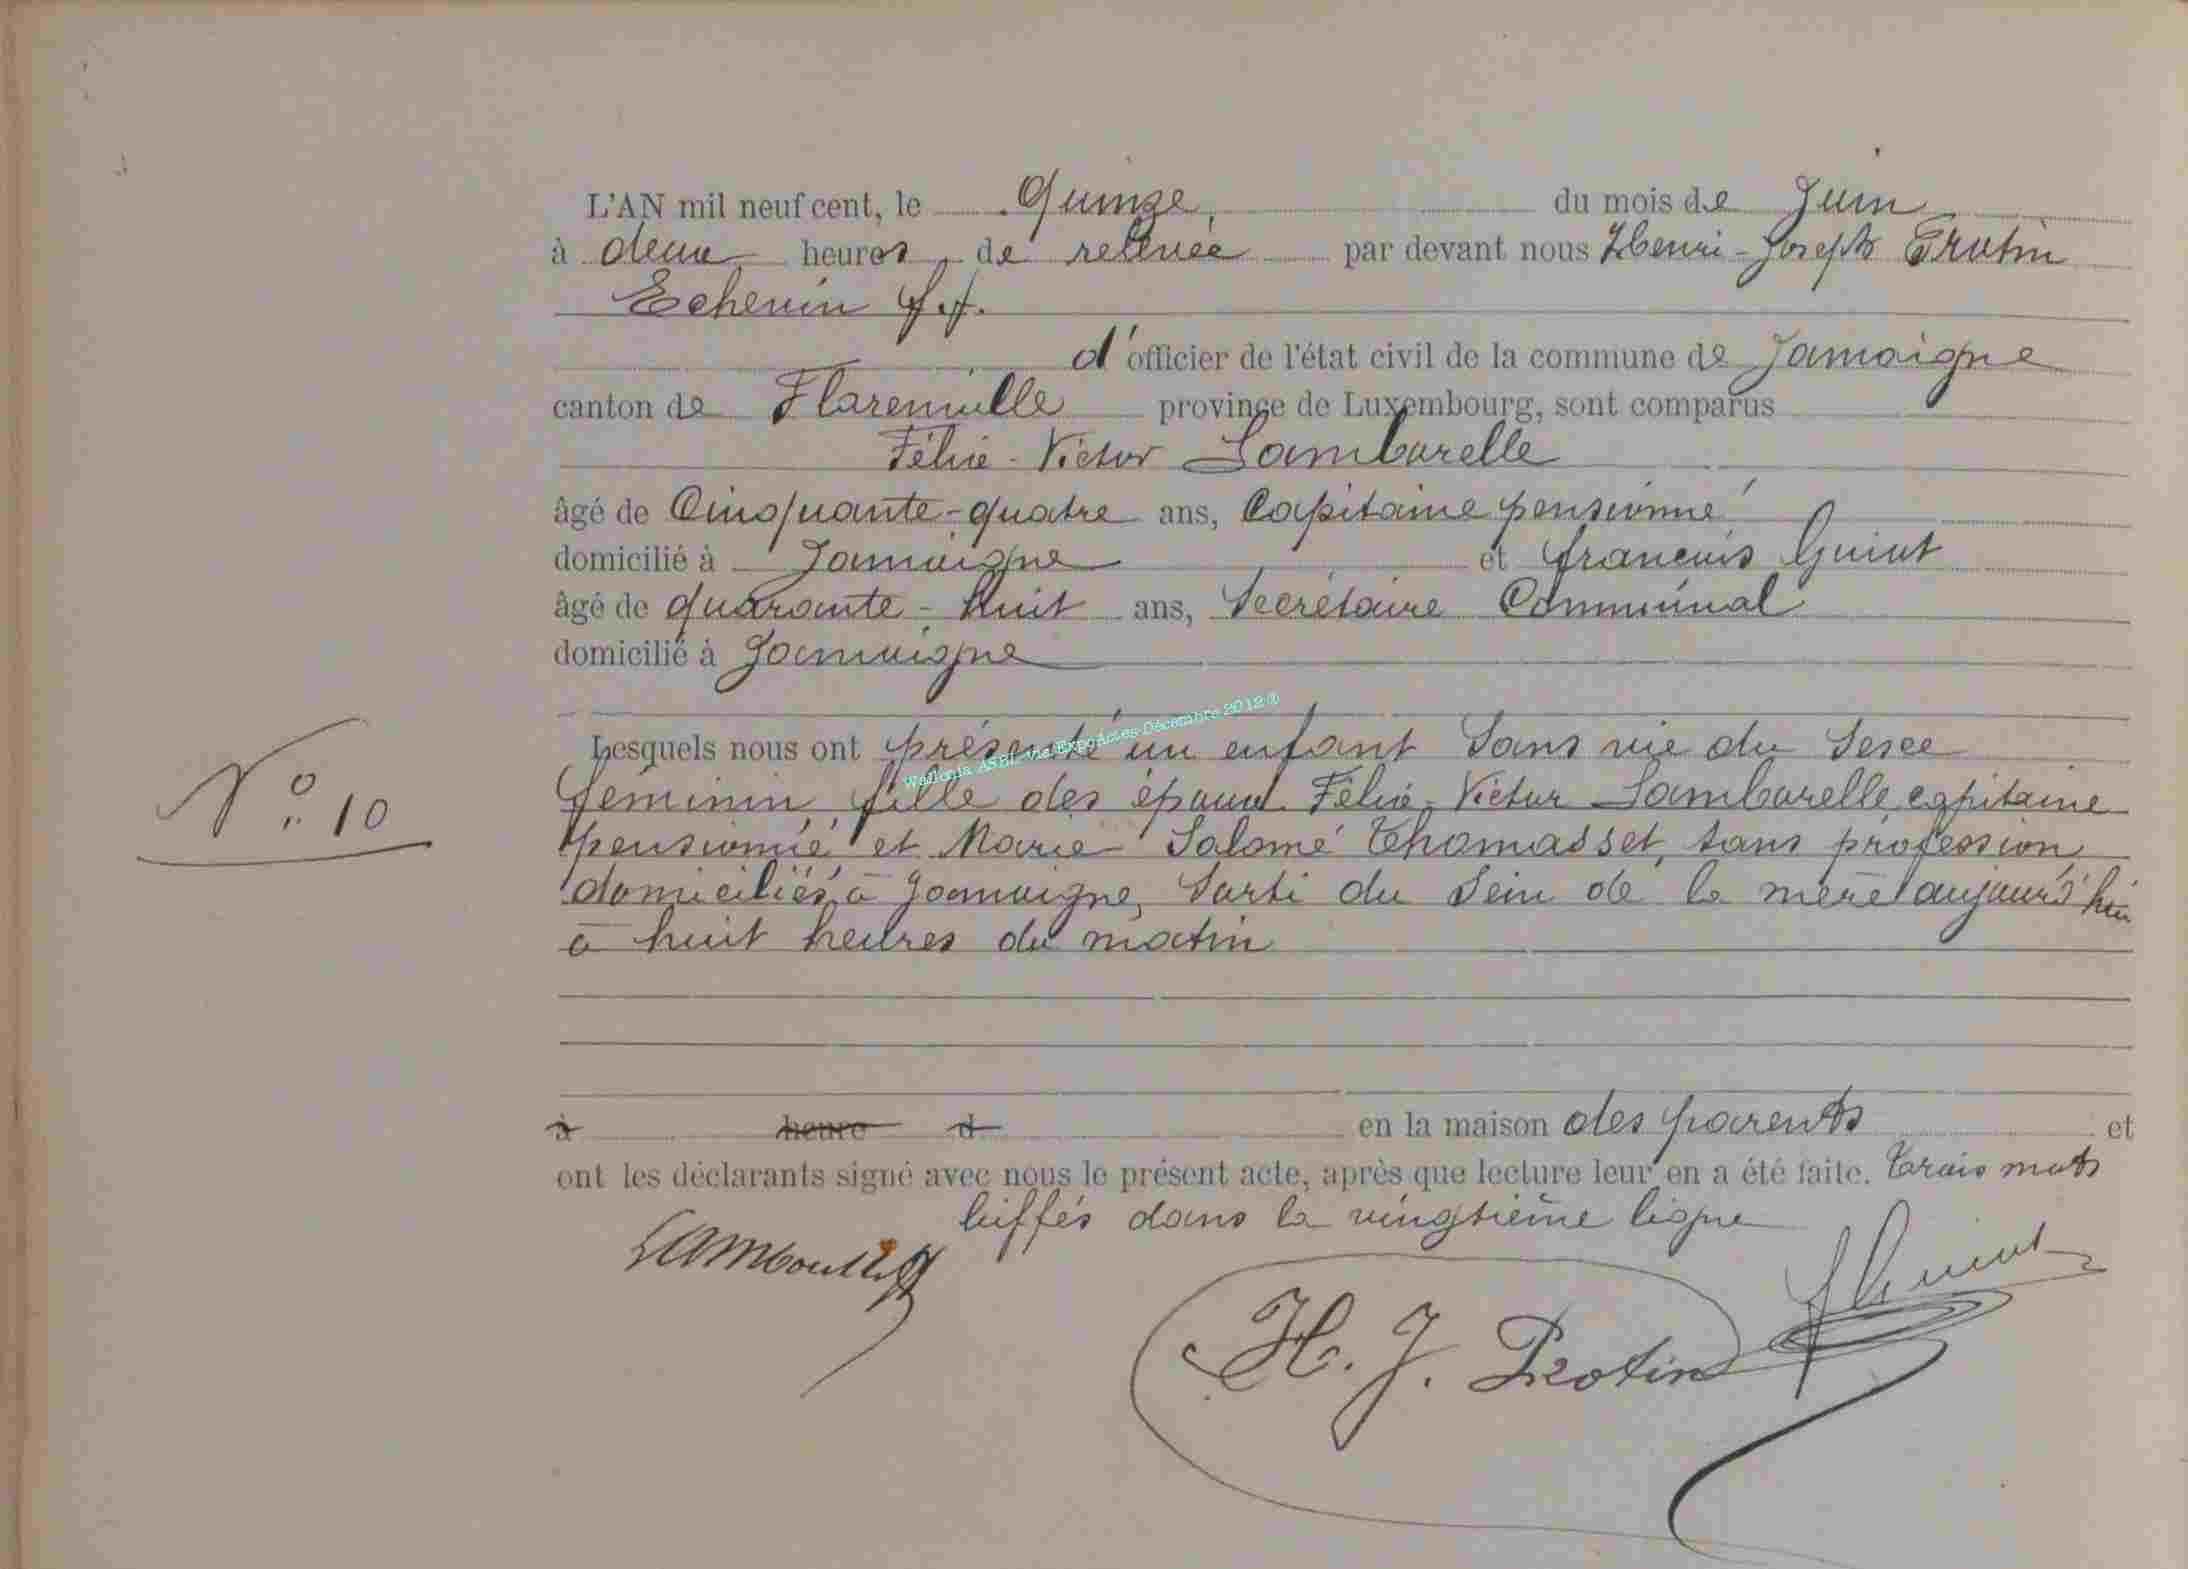 L'AN mil neuf cent, le Quinze, du mois de Juin
à deux heures de relevée par devant nous Henri-Joseph Protin
Echevin ff.
d'officier de l'état civil de la commune de Jamoigne
canton de Florenville province de Luxembourg, sont comparus
Félix-Victor Lamborelle
âgé de Cinquante-quatre ans, Capitaine pensionné
domicilié à Jamoigne et François Guiot
âgé de quarante-huit ans, Secrétaire Communal
domicilié à Jamoigne
Lesquels nous ont présenté un enfant Sans vie du Sexe
Wallonia ASBL via ExpoActes Décembre 2012 ®
féminin, fille des époux Félix-Victor Lamborelle, capitaine
N° 10
pensionné et Marie Salomé Thomasset, sans profession,
domiciliés à Jamoigne, Sorti du Sein de la mère aujourd'hui
à huit heures du matin
à heure d en la maison des parents et
ont les déclarants signé avec nous le présent acte, après que lecture leur en a été faite. Trois mots
biffés dans la vingtième ligne
H. J. Protin